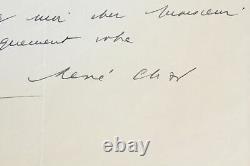 moi cher Monsieur
quement votre
René Char
© 122.com